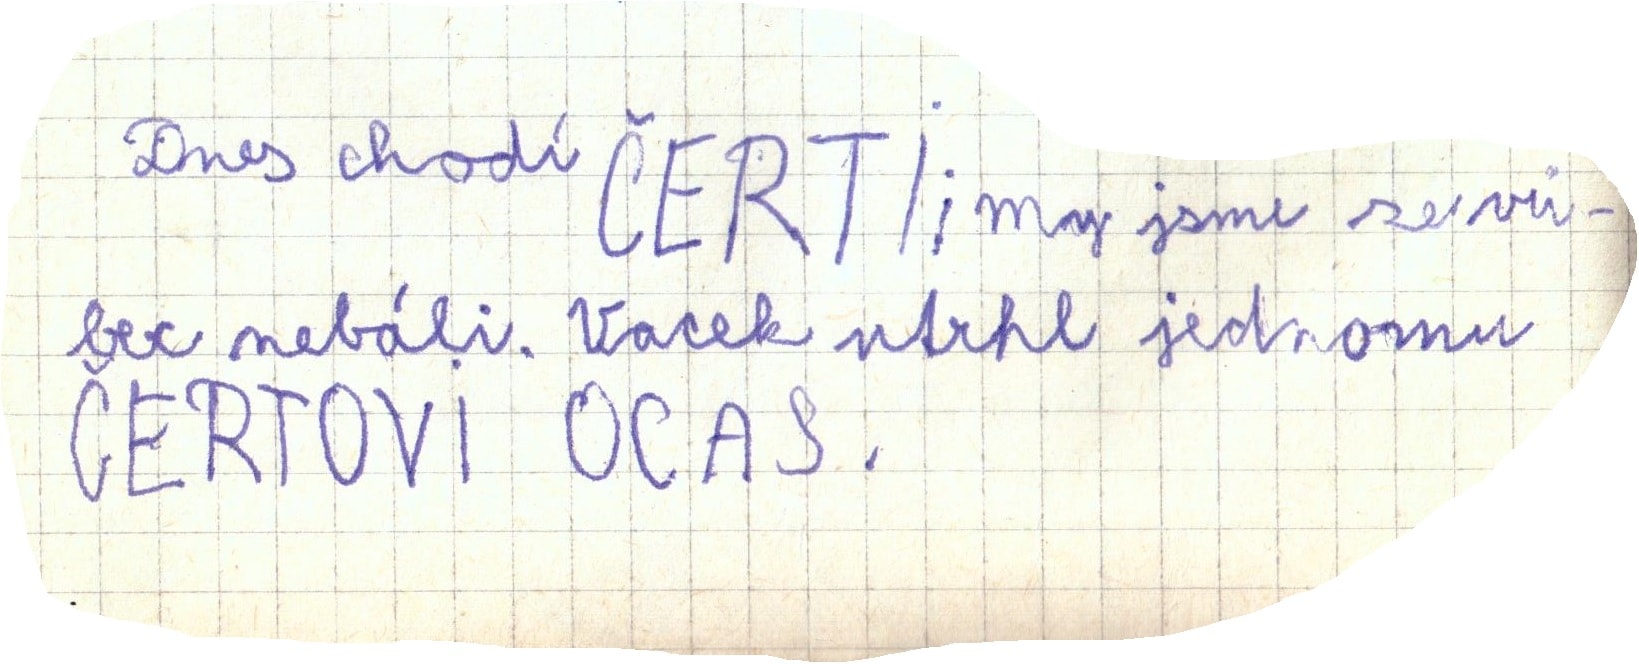 Dnes chodí ČERTI; my jsme se vů-
bec nebáli. Vacek utrhl jednomu
ČERTOVI OCAS.